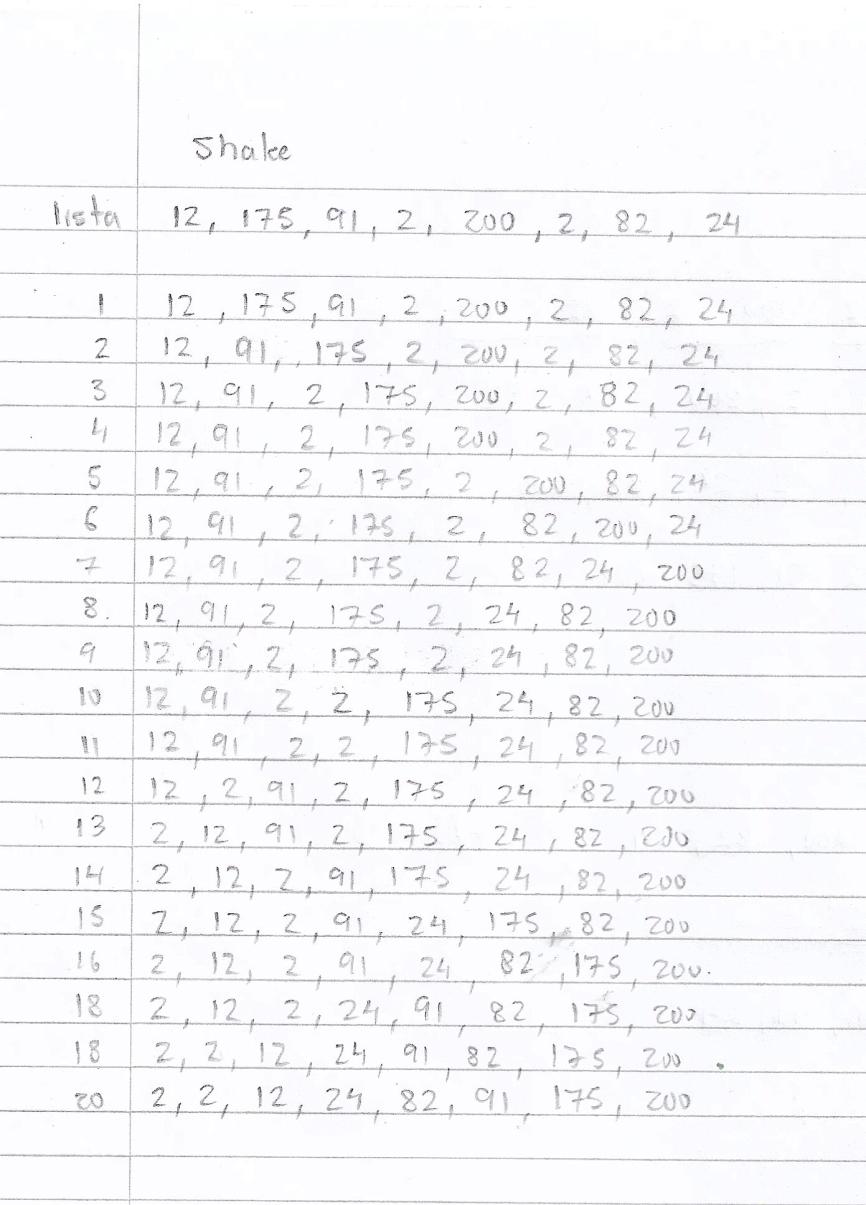 Shake
lista 12, 175, 91, 2, 200, 2, 82, 24
1 12, 175, 91, 2, 200, 2, 82, 24
2 12, 91, 175, 2, 200, 2, 82, 24
3 12, 91, 2, 175, 200, 2, 82, 24
4 12, 91, 2, 175, 200, 2, 82, 24
5 12, 91, 2, 175, 2, 200, 82, 24
6 12, 91, 2, 175, 2, 82, 200, 24
7 12, 91, 2, 175, 2, 82, 24, 200
8. 12, 91, 2, 175, 2, 24, 82, 200
9 12, 91, 2, 175, 2, 24, 82, 200
10 12, 91, 2, 2, 175, 24, 82, 200
11 12, 91, 2, 2, 175, 24, 82, 200
12 12, 2, 91, 2, 175, 24, 82, 200
13 2, 12, 91, 2, 175, 24, 82, 200
14 2, 12, 2, 91, 175, 24, 82, 200
15 2, 12, 2, 91, 24, 175, 82, 200
16 2, 12, 2, 91, 24, 82, 175, 200.
18 2, 12, 2, 24, 91, 82, 175, 200
18 2, 2, 12, 24, 91, 82, 175, 200.
20 2, 2, 12, 24, 82, 91, 175, 200